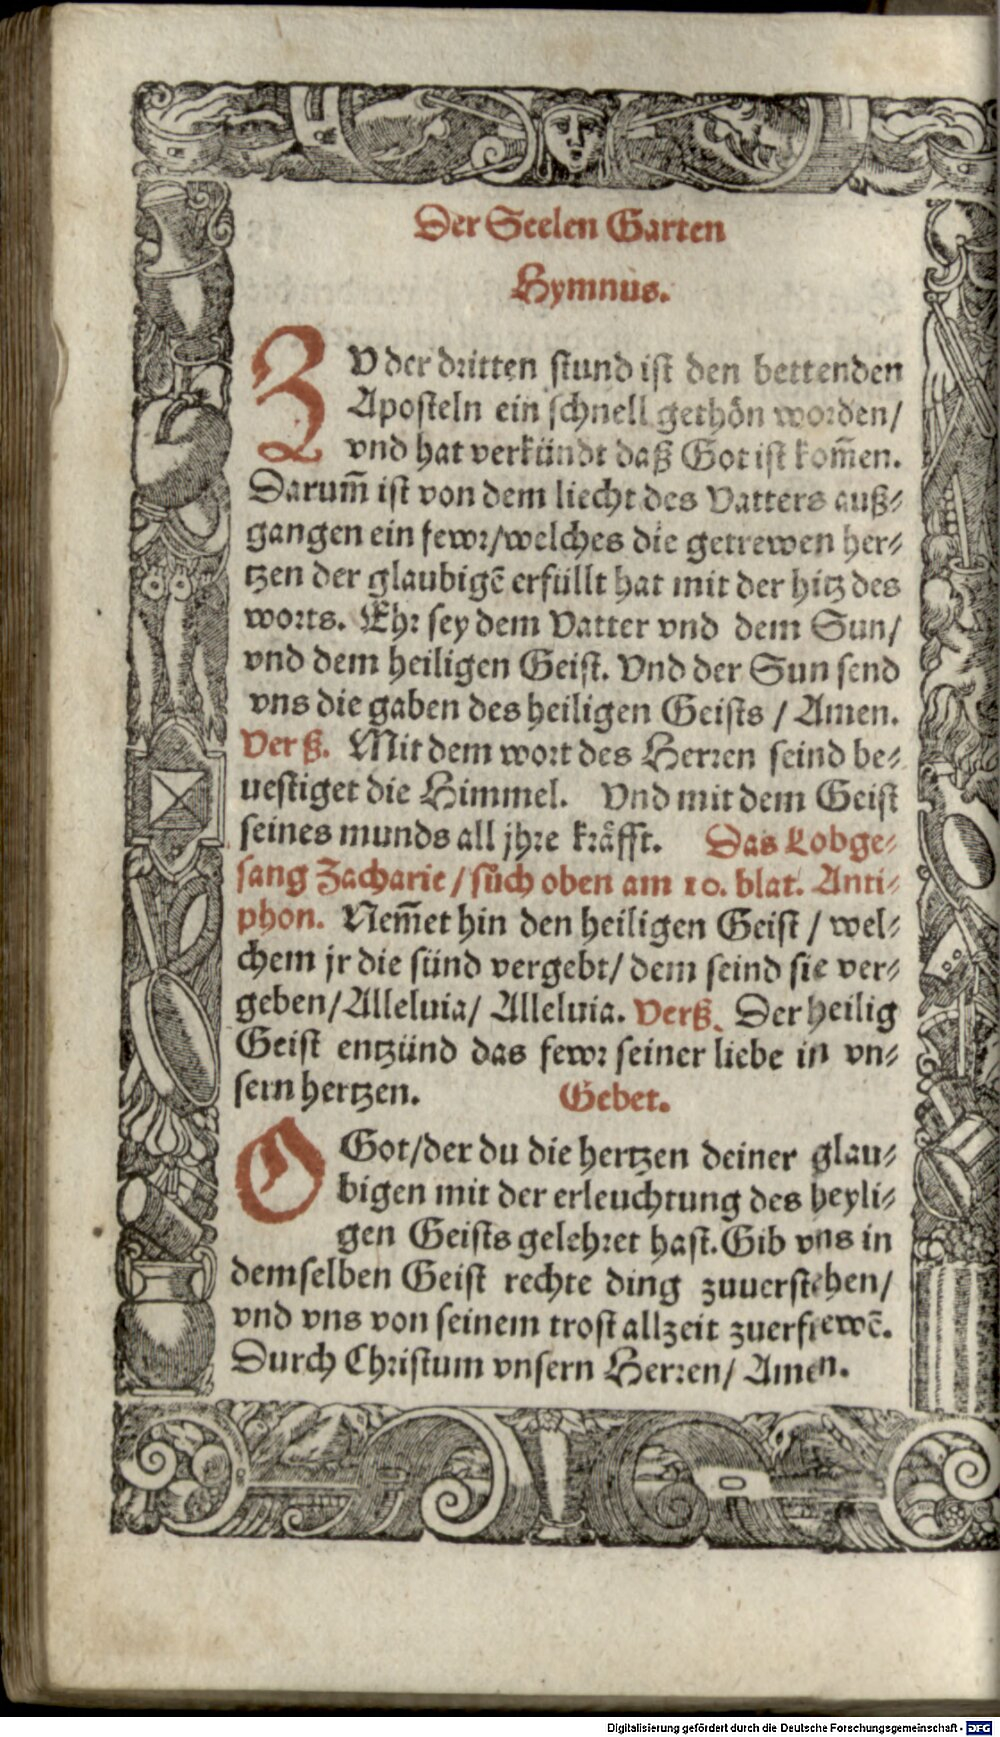 Der Seelen Garten
Hymnus.
ZV der dritten stund ist den bettenden
Aposteln ein schnell gethön worden/
vnd hat verkündt daß Got ist kom̃en.
Darum̃ ist von dem liecht des Vatters auß⸗
gangen ein fewr/welches die getrewen her⸗
tzen der glaubigẽ erfüllt hat mit der hitz des
worts. Ehr sey dem Vatter vnd dem Sun/
vnd dem heiligen Geist. Vnd der Sun send
vns die gaben des heiligen Geists / Amen.
Verß. Mit dem wort des Herren seind be⸗
uestiget die Himmel. Vnd mit dem Geist
seines munds all jhre kräfft. Das Lobge⸗
sang Zacharie / sůch oben am 10. blat. Anti⸗
phon. Nem̃et hin den heiligen Geist / wel⸗
chem jr die sünd vergebt/ dem seind sie ver⸗
geben/Alleluia/ Alleluia. Verß. Der heilig
Geist entzünd das fewr seiner liebe in vn⸗
sern hertzen. Gebet.
O Got/der du die hertzen deiner glau⸗
bigen mit der erleuchtung des heyli⸗
gen Geists gelehret hast. Gib vns in
demselben Geist rechte ding zuuerstehen/
vnd vns von seinem trost allzeit zuerfrewẽ.
Durch Christum vnsern Herren/ Amen.
Digitalisierung gefördert durch die Deutsche Forschungsgemeinschaft - DFG